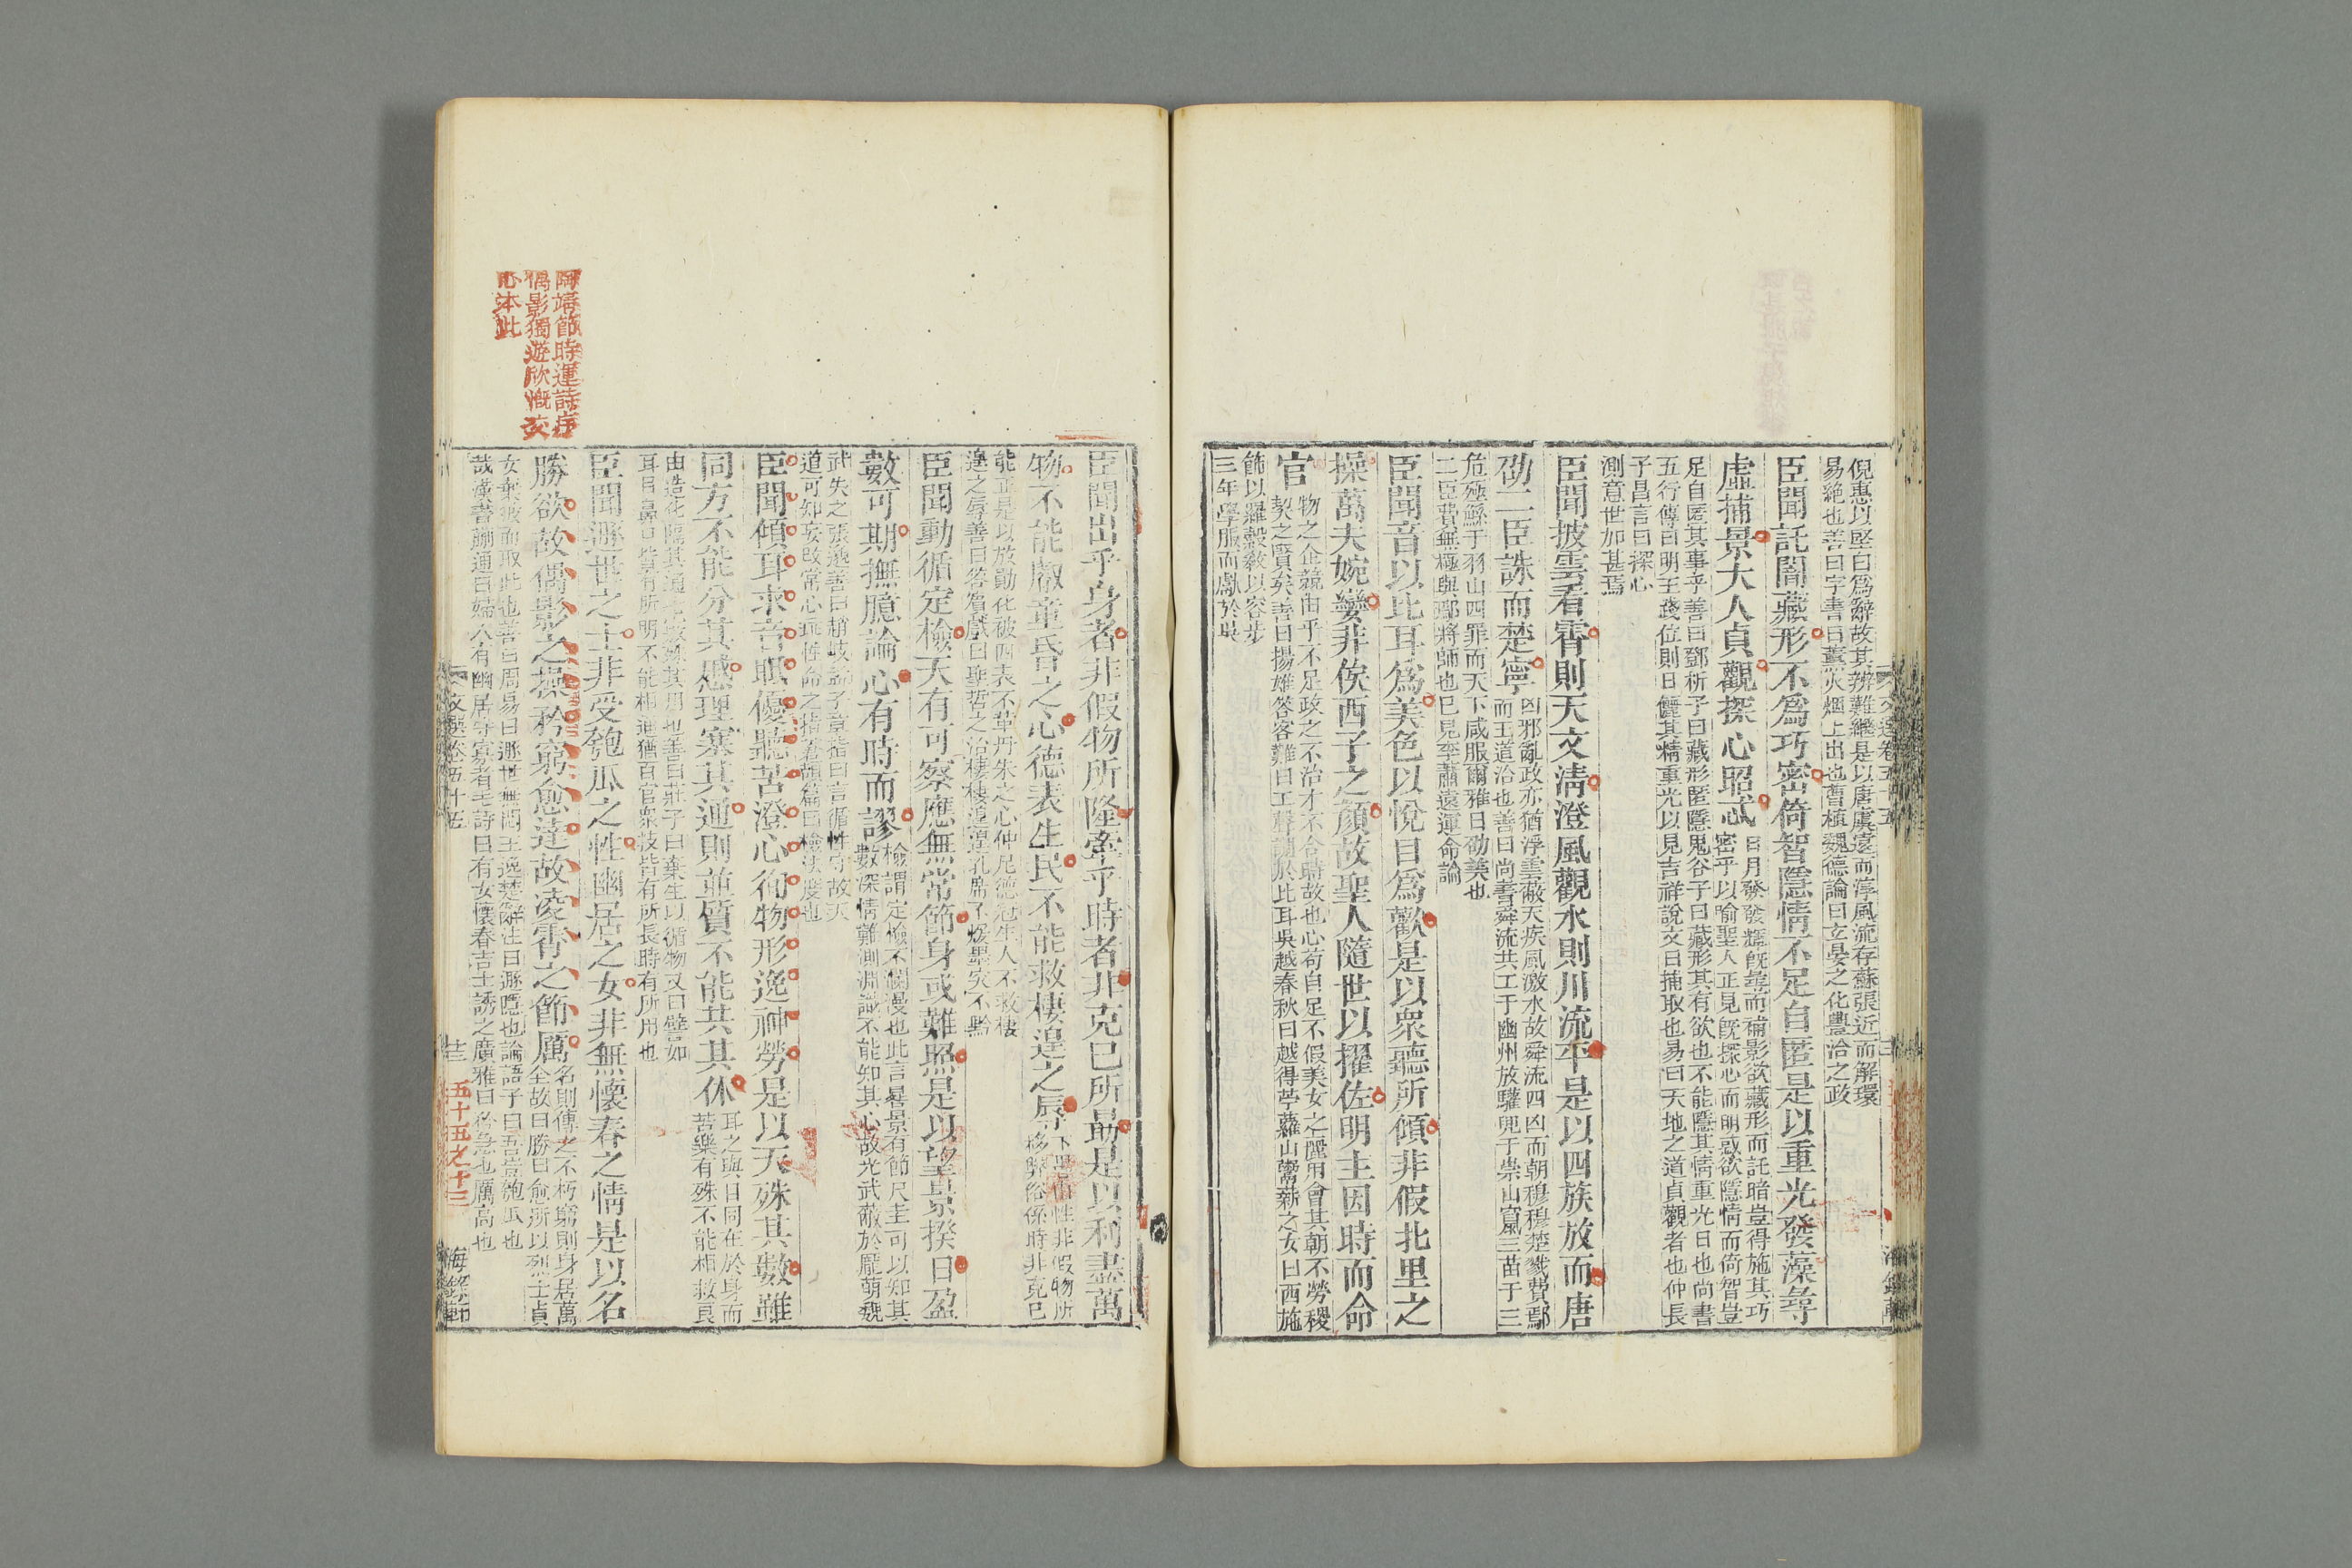 倪惠以堅白爲辭故其辨難繼是以唐虞遠而淳風流存蘇張近而解環
易絶也善曰字書曰薰火烟上出也曹植魏德論曰立晏之化豐洽之政
臣聞託闇藏形不爲巧密倚智隱情不足自匿是以重光發藻尋
虛捕景大人貞觀探心昭忒
日月發發輝旣尋而補影欲藏形而託暗豈得施其巧
密乎以喻聖人正見旣探心而明惑欲隱情而倚智豈
足自匿其事乎善曰鄧析子曰藏形匿隱鬼谷子曰藏形其有欲也不能隱其情重光日也尚書
五行傳曰明王踐位則日儷其精重光以見吉祥說文曰捕取也易曰天地之道貞觀者也仲長
子昌言曰探心
測意世加甚焉
臣聞披雲看霄則天文淸澄風觀水則川流平是以四族放而唐
劭二臣誅而楚寧
凶邪亂政亦猶浮雲蔽天疾風激水故舜流四凶而朝穆穆楚戮費鄢
而王道洽也善曰尚書舜流共工于幽州放驩兜于崇山竄三苗于三
危殛鯀于羽山四罪而天下咸服爾雅曰劭美也
二臣費無極與鄢將師也已見李蕭遠運命論
臣聞音以比耳爲美色以悅目爲歡是以衆聽所傾非假北里之
操萬夫婉孌非俟西子之顔故聖人隨世以擢佐明主因時而命
官
物之企競由乎不足政之不治才不合時故也心苟自足不假美女之麗用會其朝不勞稷
契之賢矣善曰揚雄答客難曰工聲調於比耳吳越春秋曰越得苧蘿山鬻薪之女曰西施
飾以羅縠敎以容步
三年學服而獻於吳
臣聞出乎身者非假物所隆牽乎時者非克己所勗是以利盡萬
物不能叡童昏之心德表生民不能救棲遑之辱
下愚由性非假物所
移弊俗係時非克己
能正是以放勛化被四表不革丹朱之心仲尼德冠生人不救棲
遑之辱善曰答賓戲曰聖哲之治棲棲遑遑孔席不煖墨突不黔
臣聞動循定檢天有可察應無常節身或難照是以望景揆日盈
數可期撫臆論心有時而謬
檢謂定檢不漫漫也此言晷景有節尺圭可以知其
數深情難測淵識不能知其心故光武蔽於龐萌魏
武失之張邈善曰趙岐孟子章指曰言循性守故天
道可知妄改常心玩性命之指蒼頡篇曰檢法度也
臣聞傾耳求音眂優聽苦澄心徇物形逸神勞是以天殊其數雖
同方不能分其慼理塞其通則並質不能共其休
耳之與目同在於身而
苦樂有殊不能相救良
由造化隔其通七竅殊其用也善曰莊子曰棄生以循物又曰譬如
耳目鼻口皆有所明不能相通猶百官衆技皆有所長時有所用也
臣聞遯世之士非受匏瓜之性幽居之女非無懷春之情是以名
勝欲故偶影之操矜窮愈達故凌霄之節厲
名則傳之不朽窮則身居萬
全故曰勝曰愈所以烈士貞
女棄彼而取此也善曰周易曰遯世無悶王逸楚辭注曰遯隱也論語子曰吾豈匏瓜也
哉漢書蒯通曰婦人有幽居守寡者毛詩曰有女懷春吉士誘之廣雅曰矜急也厲高也
文選卷五十五
五十五之十三
陶靖節時運詩序
偶影獨遊欣慨交
心本此